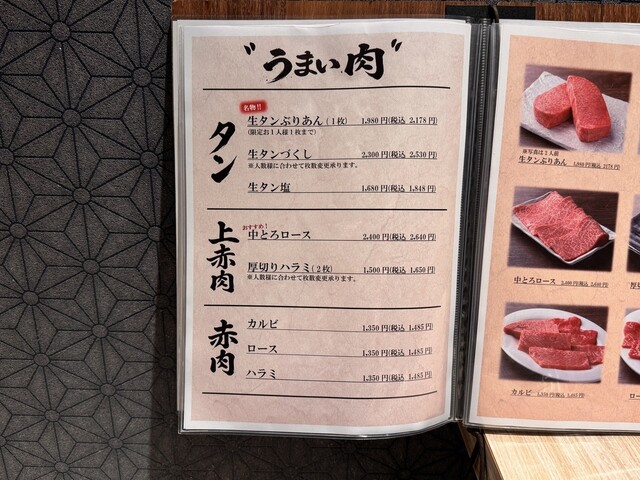 "うまい肉"
タン
名物!!
生タンぶりあん(1枚) 1,980円(税込 2,178円)
(限定お1人様1枚まで)
生タンづくし 2,300円(税込 2,530円)
※人数様に合わせて枚数変更承ります。
生タン塩 1,680円(税込 1,848円)
上赤肉
おすすめ!
中とろロース 2,400円(税込 2,640円)
厚切りハラミ(2枚) 1,500円(税込 1,650円)
※人数様に合わせて枚数変更承ります。
赤肉
カルビ 1,350円(税込 1,485円)
ロース 1,350円(税込 1,485円)
ハラミ 1,350円(税込 1,485円)
※写真は2人前
生タンぶりあん 1,980円(税込 2178円)
中とろロース 2,400円(税込 2,640円)
厚切
カルビ 1,350円(税込 1,485円)
ロー